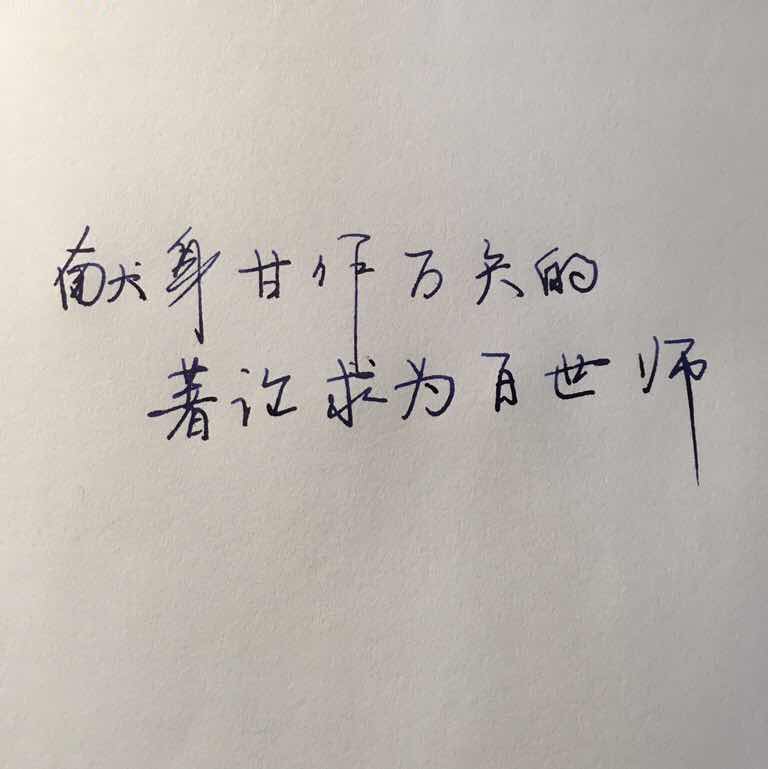 献身甘作万矢的
著论求为百世师